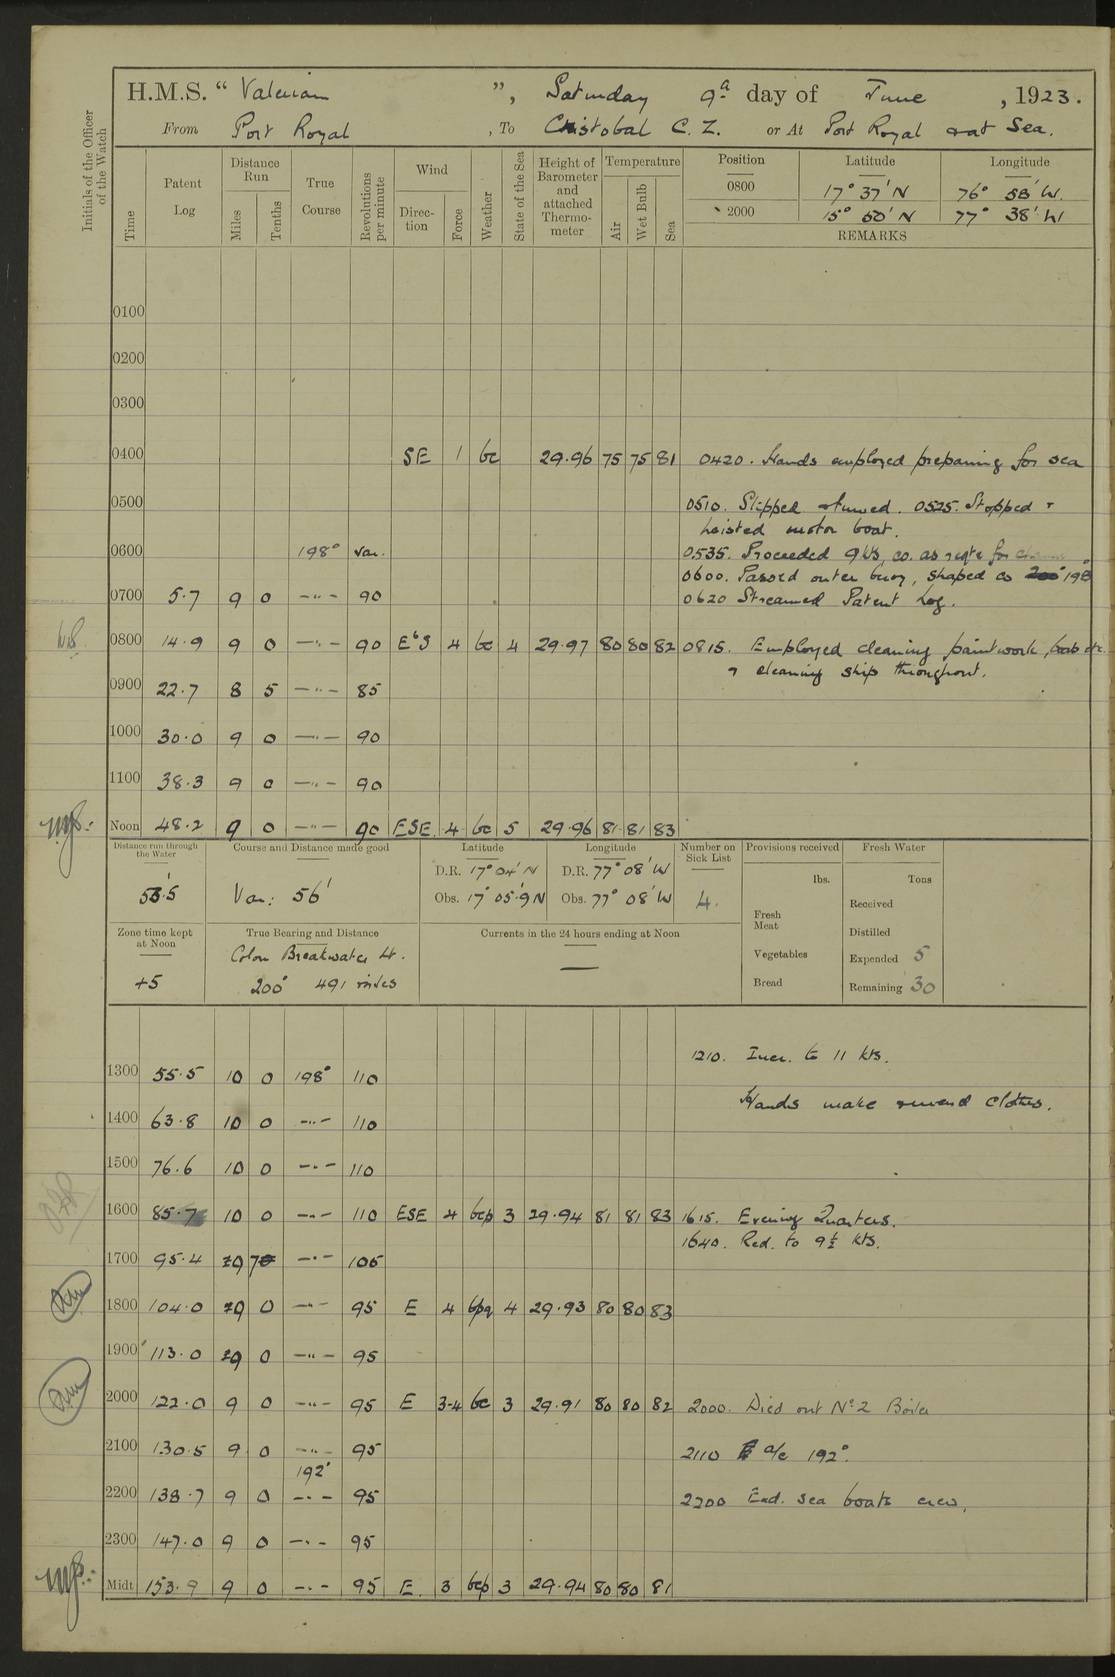 H.M.S. “ Valerian ”, Saturday 9th day of June , 1923.
From Port Royal , To Cristobal C. Z. or At Port Royal & at Sea.
Initials of the Officer of the Watch
Time Patent Log Distance Run Miles Tenths True Course Revolutions per minute Wind Direction Force Weather State of the Sea Height of Barometer and attached Thermometer Temperature Air Wet Bulb Sea Position Latitude Longitude
0800 17° 37' N 76° 58' W.
2000 15° 50' N 77° 38' W
REMARKS
0100
0200
0300
0400 SE 1 bc 29.96 75 75 81 0420. Hands employed preparing for sea
0500 0510. Slipped & turned. 0525. Stopped &
hoisted motor boat.
0600 198° var. 0535. Proceeded 9 kts, co. as reqte for
0600. Passed outer buoy, shaped co 198°
0700 5.7 9 0 —"— 90 0620 Streamed Patent Log.
0800 14.9 9 0 —"— 90 E'S 4 bc 4 29.97 80 80 82 0815. Employed cleaning paintwork, etc.
& cleaning ship throughout.
0900 22.7 8 5 —"— 85
1000 30.0 9 0 —"— 90
1100 38.3 9 0 —"— 90
Noon 48.2 9 0 —"— 90 ESE. 4 bc 5 29.96 81 81 83
Distance run through the Water Course and Distance made good Latitude Longitude Number on Sick List Provisions received Fresh Water
D.R. 17° 04' N D.R. 77° 08' W lbs. Tons
53'.5 Var: 56' Obs. 17° 05'.9 N Obs. 77° 08' W 4. Received
Fresh Meat
Zone time kept at Noon True Bearing and Distance Currents in the 24 hours ending at Noon Distilled
Colon Breakwater Lt. — Vegetables Expended 5
+5 200° 491 miles Bread Remaining 30
1210. Incr. to 11 kts.
1300 55.5 10 0 198° 110
Hands make & mend clothes.
1400 63.8 10 0 —"— 110
1500 76.6 10 0 —"— 110
1600 85.7 10 0 —"— 110 ESE 4 bcp 3 29.94 81 81 83 1615. Evening Quarters.
1640. Red. to 9½ kts.
1700 95.4 9 7 —"— 105
1800 104.0 9 0 —"— 95 E 4 bpq 4 29.93 80 80 83
1900 113.0 9 0 —"— 95
2000 122.0 9 0 —"— 95 E 3-4 bc 3 29.91 80 80 82 2000. Died out No 2 Boiler
2100 130.5 9 0 —"— 95 2110 a/c 192°.
192°
2200 138.7 9 0 —"— 95 2200 Exd. sea boats crew.
2300 147.0 9 0 —"— 95
Midt 153.9 9 0 —"— 95 E. 3 bcp 3 29.94 80 80 81